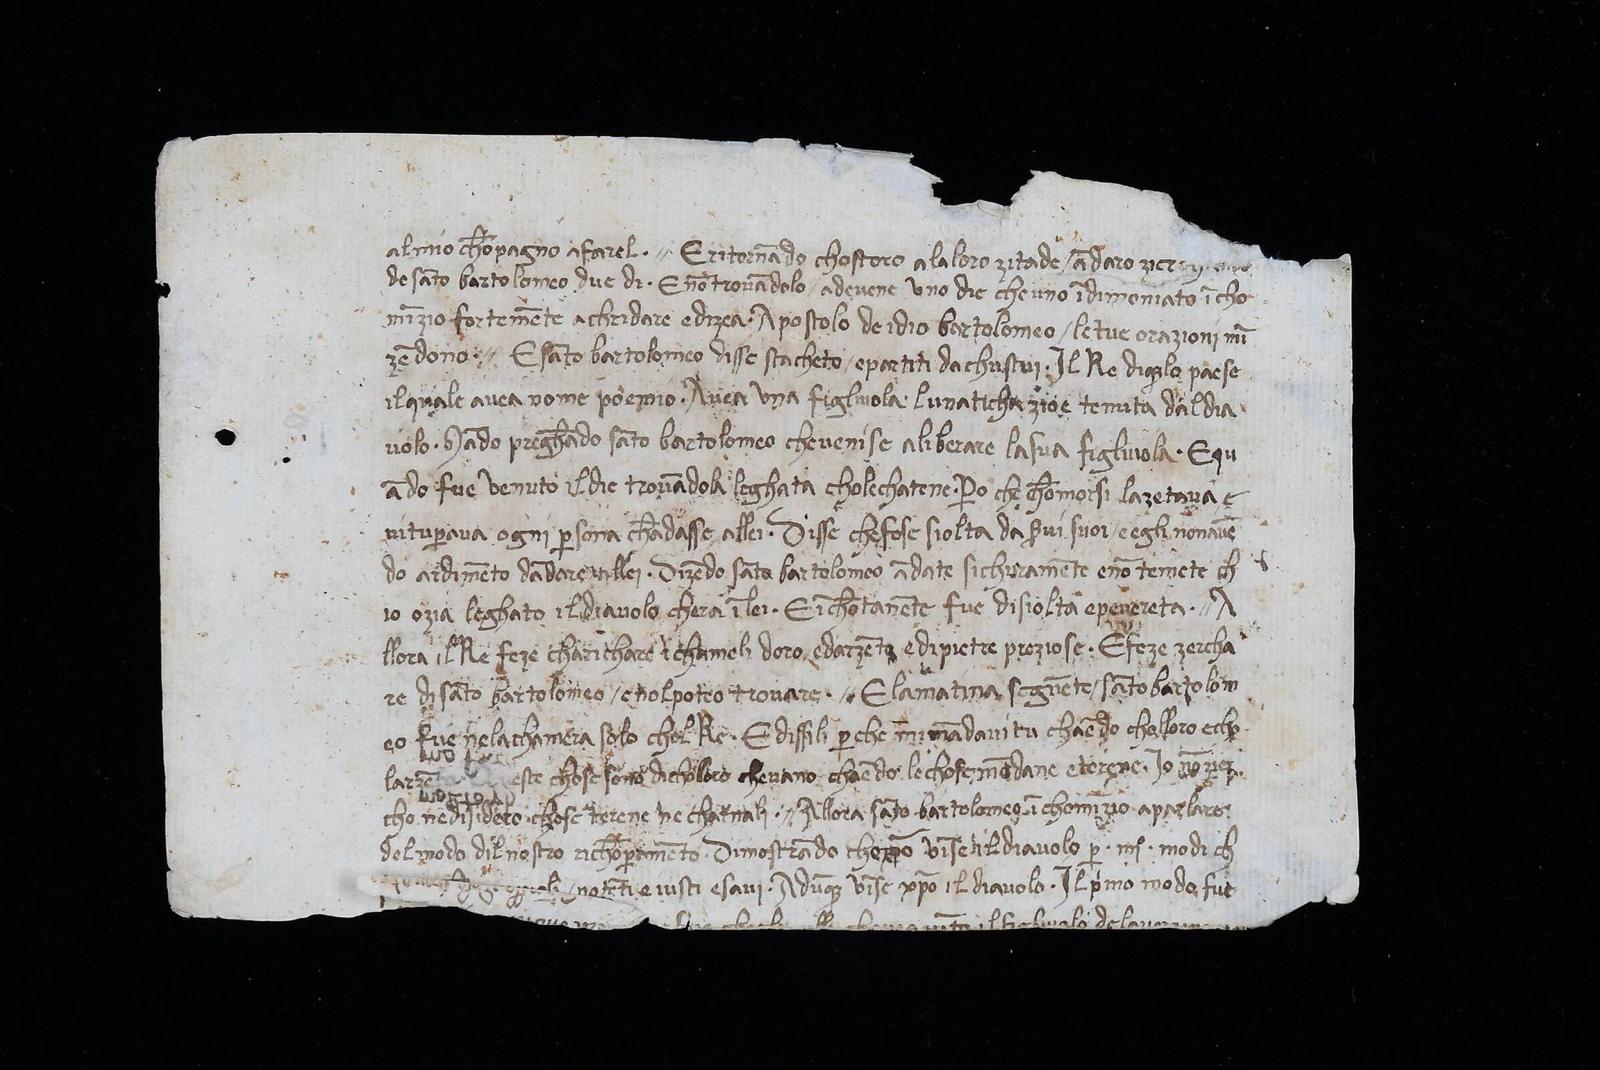 al mio chōpagno afarel · // E ritornādo chostoro a la loro zitade / ādaro
de sāto bartolomeo due di · E nō trovādolo / adevene uno die che uno īdimoniato īcho
mīzio fortemēte a chridare e dizea · Apostolo de idio bartolomeo / le tue orazioni mī
zēdono · // E sāto bartolomeo disse sta cheto / e partiti da chustui · Il Re di q̄lo paese
il quale avea nome polemio · Avea una figliuola lunaticha zioe tenuta dal dia
volo · Mādo preghādo sāto bartolomeo che venise a liberare la sua figliuola · E qu
ādo fue venuto il die trovādola leghata chole chatene · Po che chō morsi lazerava e
vitup̄ava ogni p̄sona ch ādasse allei · Disse che fose siolta da s̄vi suoi / e egli non avē
do ardimēto d ādare allei · Dizēdo sāto bartolomeo ādate sichuramēte e nō temete ch̄
io o zia leghato il diavolo ch era ī lei · E īchōtanēte fue disiolta e penereta · // A
llora il Re feze charichare i chameli d oro e d arzēto e di pietre preziose · E feze zercha
re di sāto bartolomeo / e nol poteo trovare · // E la matina seguēte / sāto bartolom
eo fue ne la chamera solo chol Re · E dissili p̄ che mī mādavi tu chaēdo cholloro e chol
larzē este chose sono di choloro che vano chaēdo le chose mōdane e terene · Io nō zier
cho ne disidero chose terene ne charnali · // Allora sāto bartolomeo īchomizio a parlare
del modo dil nostro richōp̄amēto · Dimostrādo che xp̄o vīse il diavolo p̄ · iiij · modi ch̄
e iusti e savi · Adūq̄ vīse xp̄o il diavolo · Il p̄mo modo fue
il figliuolo de la